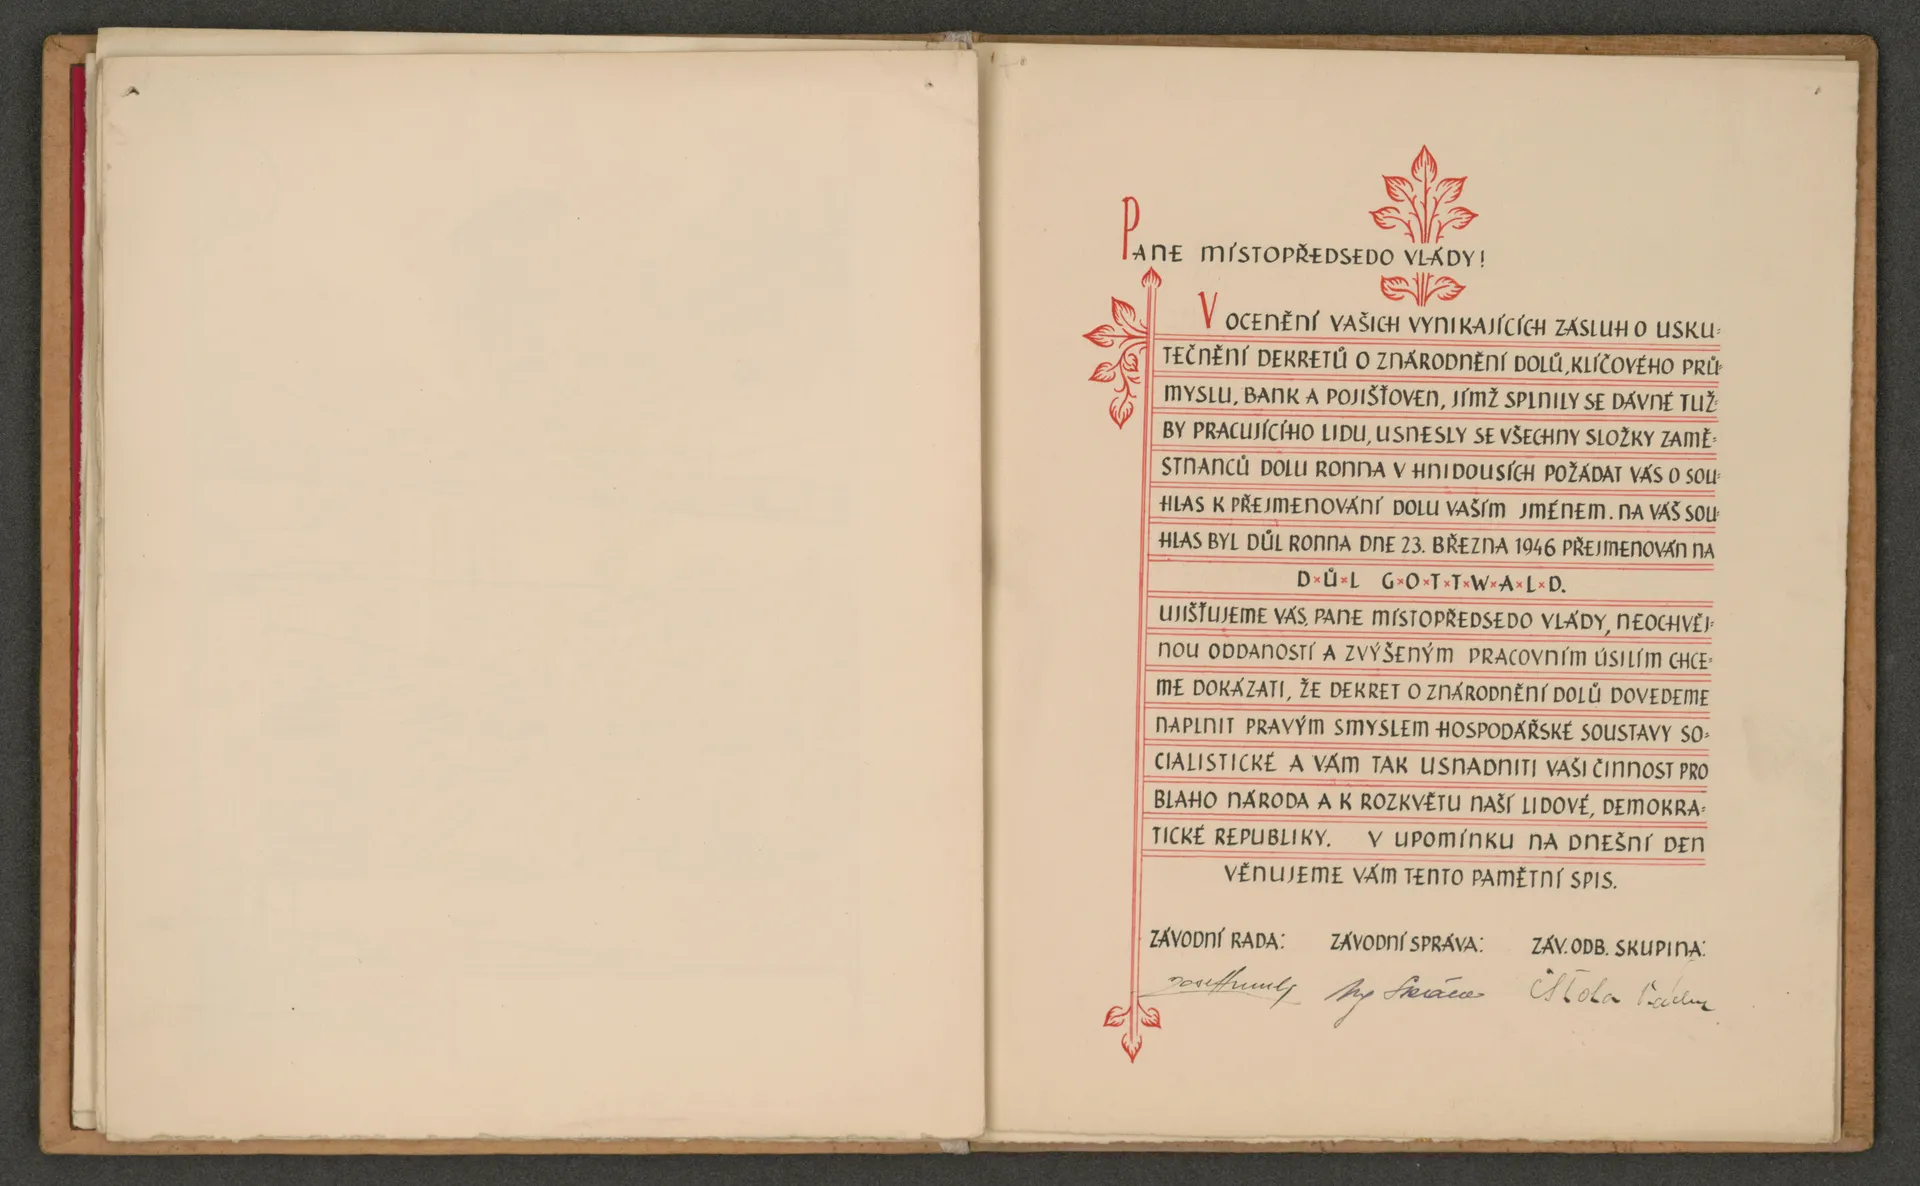 PANE MÍSTOPŘEDSEDO VLÁDY!
V OCENĚNÍ VAŠICH VYNIKAJÍCÍCH ZÁSLUH O USKU-
TEČNĚNÍ DEKRETŮ O ZNÁRODNĚNÍ DOLŮ, KLÍČOVÉHO PRŮ-
MYSLU, BANK A POJIŠŤOVEN, JÍMŽ SPLNILY SE DÁVNÉ TUŽ-
BY PRACUJÍCÍHO LIDU, USNESLY SE VŠECHNY SLOŽKY ZAMĚ-
STNANCŮ DOLU RONNA V HNIDOUSÍCH POŽÁDAT VÁS O SOU-
HLAS K PŘEJMENOVÁNÍ DOLU VAŠÍM JMÉNEM. NA VÁŠ SOU-
HLAS BYL DŮL RONNA DNE 23. BŘEZNA 1946 PŘEJMENOVÁN NA
D×Ů×L G×O×T×T×W×A×L×D.
UJIŠŤUJEME VÁS, PANE MÍSTOPŘEDSEDO VLÁDY, NEOCHVĚJ-
NOU ODDANOSTÍ A ZVÝŠENÝM PRACOVNÍM ÚSILÍM CHCE-
ME DOKÁZATI, ŽE DEKRET O ZNÁRODNĚNÍ DOLŮ DOVEDEME
NAPLNIT PRAVÝM SMYSLEM HOSPODÁŘSKÉ SOUSTAVY SO-
CIALISTICKÉ A VÁM TAK USNADNITI VAŠI ČINNOST PRO
BLAHO NÁRODA A K ROZKVĚTU NAŠÍ LIDOVÉ, DEMOKRA-
TICKÉ REPUBLIKY. V UPOMÍNKU NA DNEŠNÍ DEN
VĚNUJEME VÁM TENTO PAMĚTNÍ SPIS.
ZÁVODNÍ RADA: ZÁVODNÍ SPRÁVA: ZÁV. ODB. SKUPINA: